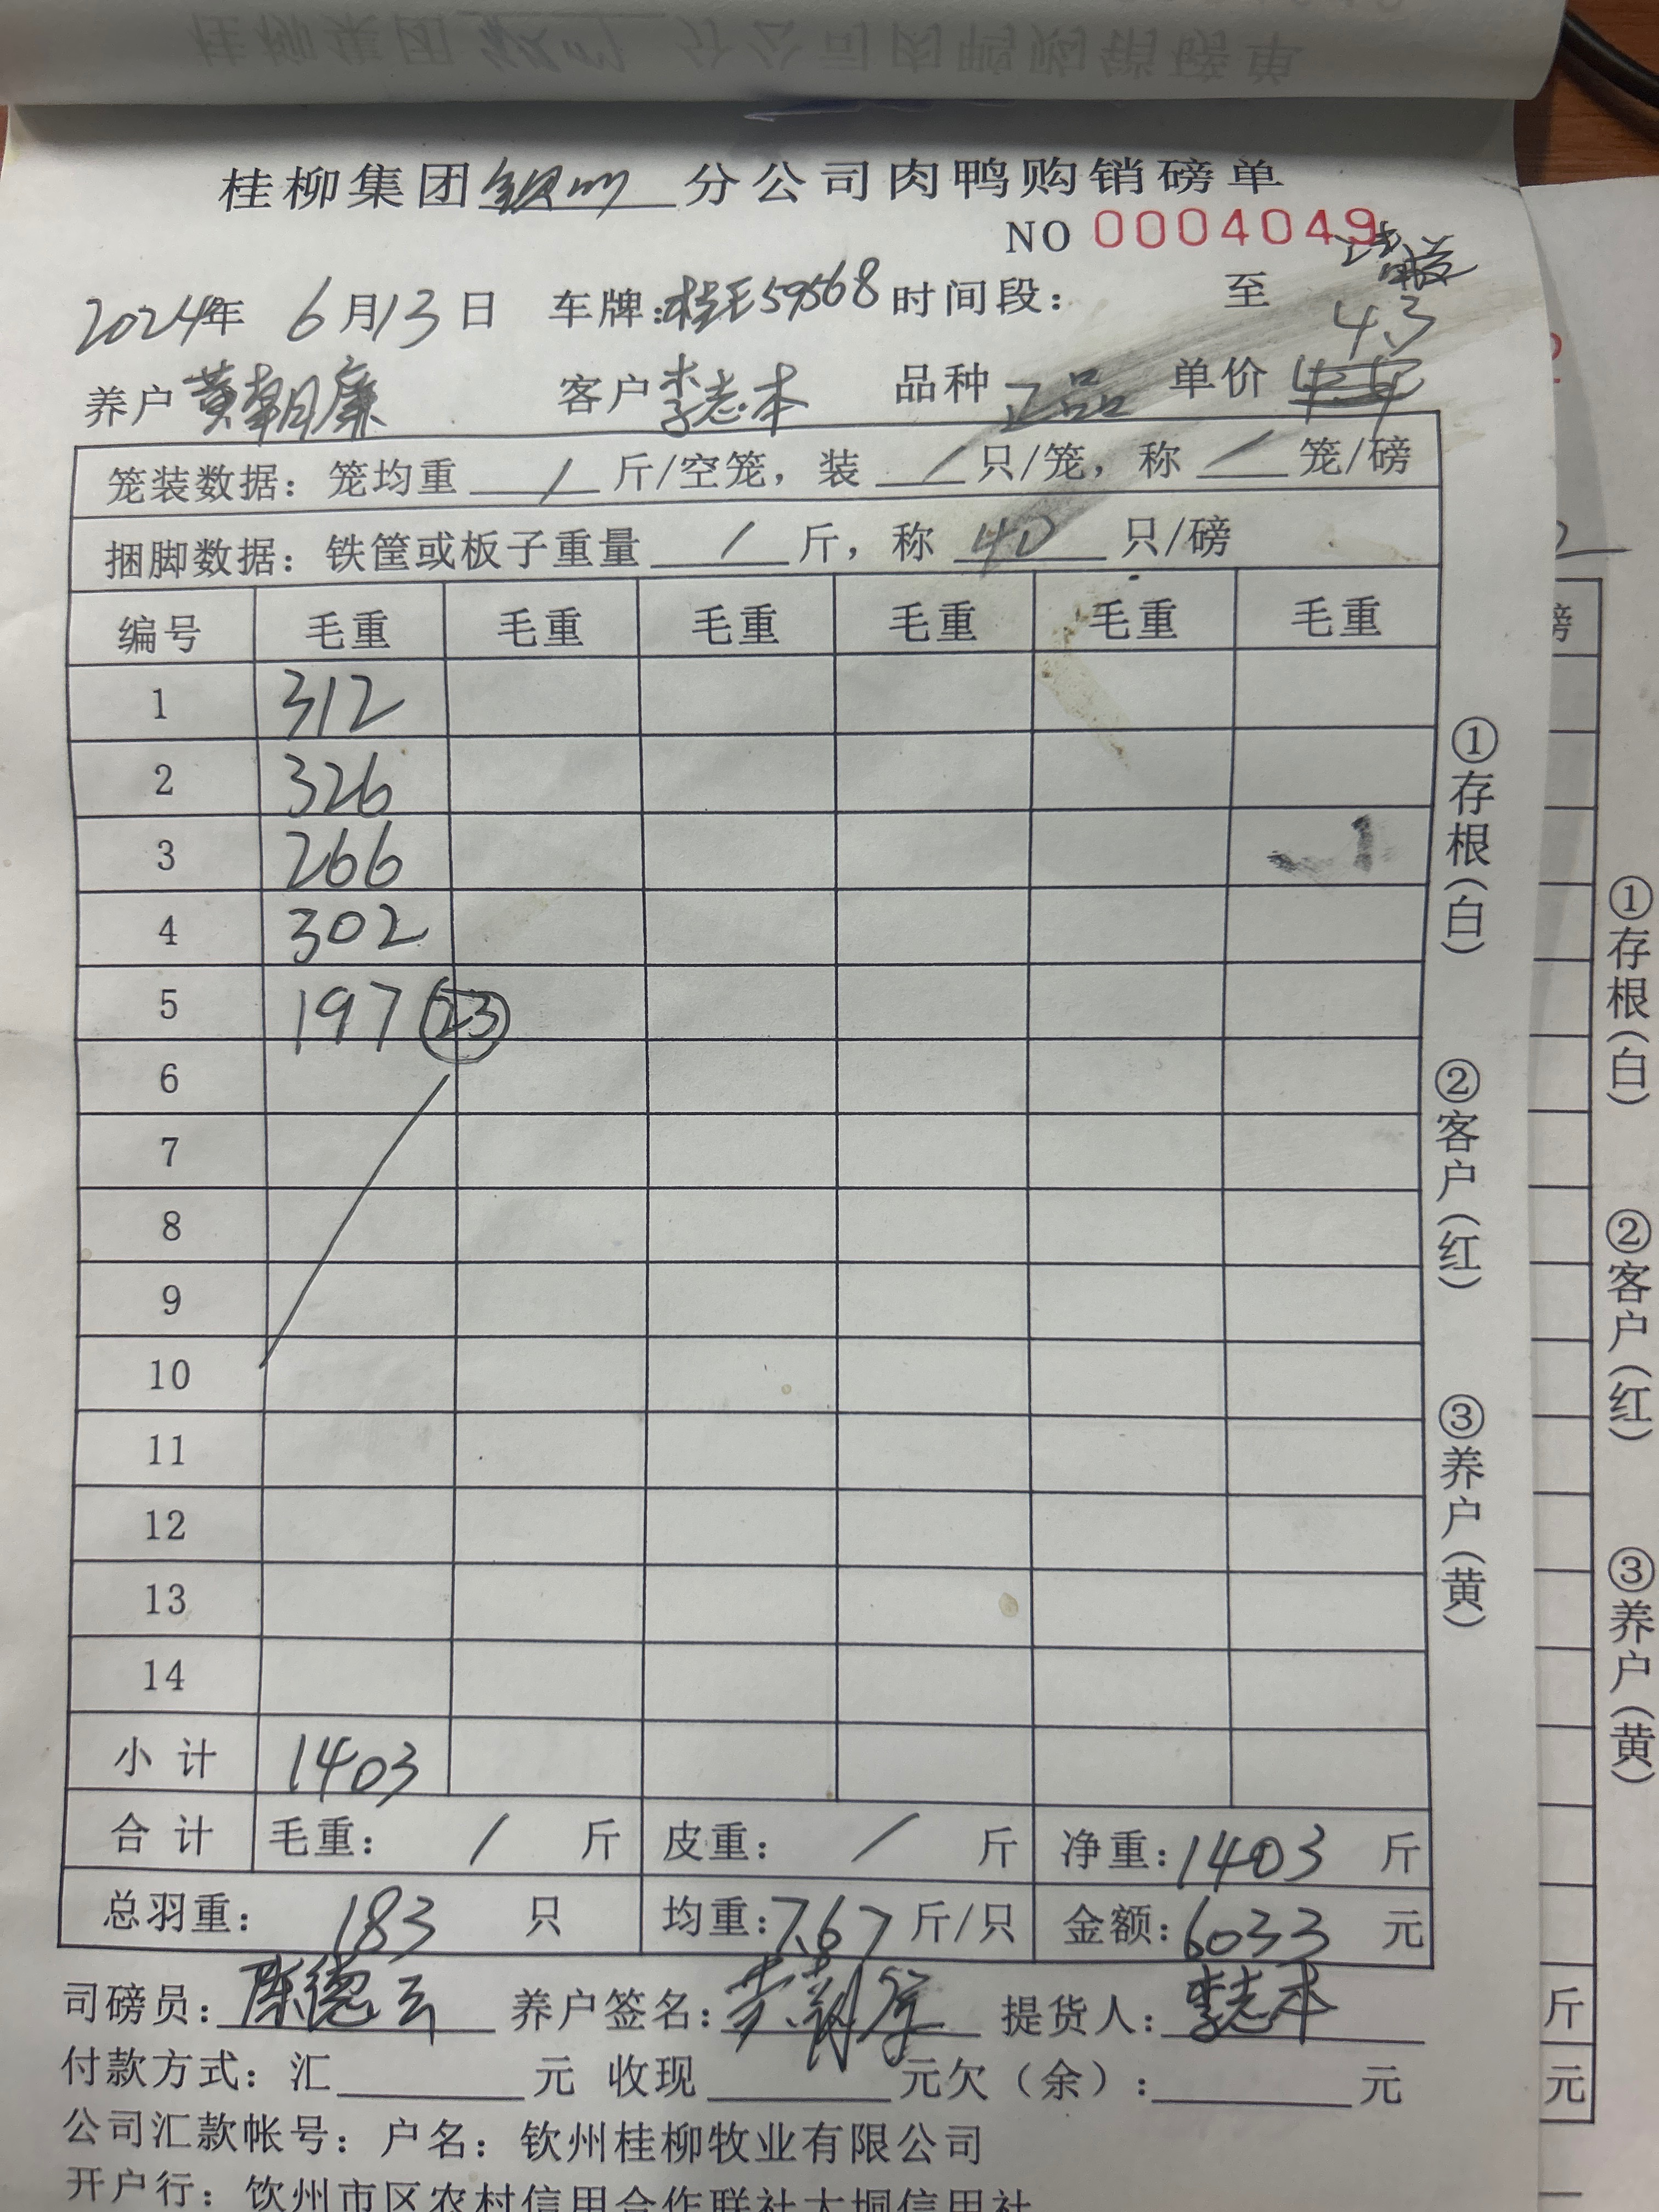 桂柳集团钦州分公司肉鸭购销磅单
NO 0004049
2024年 6月13日 车牌:桂E59568 时间段: 至
4.3
养户 黄朝廉 客户 李志本 品种 正品 单价
笼装数据: 笼均重 / 斤/空笼, 装 / 只/笼, 称 / 笼/磅
捆脚数据: 铁筐或板子重量 / 斤, 称 40 只/磅
编号 毛重 毛重 毛重 毛重 毛重 毛重
1 312
2 326
3 266
4 302
5 197 23
6
7
8
9
10
11
12
13
14
小计 1403
合计 毛重: / 斤 皮重: / 斤 净重: 1403 斤
总羽重: 183 只 均重: 7.67 斤/只 金额: 6033 元
司磅员: 陈德云 养户签名: 提货人: 李志本
付款方式: 汇 元 收现 元欠(余): 元
公司汇款帐号: 户名: 钦州桂柳牧业有限公司
开户行: 钦州市区农村信用合作联社大垌信用社
①存根(白)
②客户(红)
③养户(黄)
磅
①存根(白)
②客户(红)
③养户(黄)
斤
元